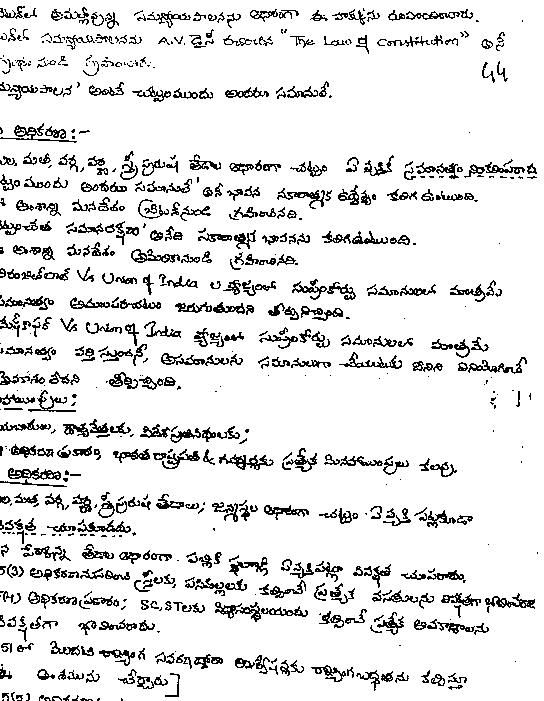 అమల్లోవున్న సమన్యాయపాలనను ఆధారంగా ఈ హక్కును రూపొందించారు.
సమన్యాయపాలనను A.V. డైసీ రచించిన "The Law of Constitution" అనే
గ్రంథం నుండి గ్రహించారు.
44
' అంటే చట్టంముందు అందరూ సమానులే.
అధికరణ :-
మత, వర్గ, వర్ణ, స్త్రీ పురుష భేదాల ఆధారంగా చట్టం ఏ వ్యక్తికీ సమానత్వం నిరాకరించరాదు
ముందు అందరూ సమానులే' అనే భావన నకారాత్మక ఉద్దేశ్యం కలిగి ఉంటుంది.
అంశాన్ని మనదేశం బ్రిటన్ నుండి గ్రహించినది.
సమానరక్షణ' అనేది సకారాత్మక భావనను కలిగిఉంటుంది.
అంశాన్ని మనదేశం అమెరికానుండి గ్రహించినది.
Vs Union of India ల వ్యాజ్యంలో సుప్రీంకోర్టు సమానులలో మాత్రమే
సమానత్వం అమలుపరచటం జరుగుతుందని తీర్పునిచ్చింది.
Vs Union of India వ్యాజ్యంలో సుప్రీంకోర్టు సమానులలో మాత్రమే
సమానత్వం వర్తిస్తుందనీ, అసమానులను సమానులుగా చేయుటకు దీనిని వినియోగించే
అవకాశం లేదని తీర్పిచ్చింది.
మినహాయింపులు :
రాయబారులు, దౌత్యవేత్తలకు, విదేశీప్రతినిధులకు;
అధికరణ ప్రకారం, భారత రాష్ట్రపతి & గవర్నర్లకు ప్రత్యేక మినహాయింపులు కలవు.
అధికరణ :-
మత, వర్గ, వర్ణ, స్త్రీ పురుష భేదాలు, జన్మస్థల ఆధారంగా చట్టం ఏ వ్యక్తి పట్లకూడా
వివక్షత చూపకూడదు.
పేర్కొన్న భేదాల ఆధారంగా పబ్లిక్ స్థలాల్లో ఏవ్యక్తిపట్లా వివక్షత చూపరాదు.
(3) అధికరణాననుసరించి స్త్రీలకు, పసిపిల్లలకు కల్పించే ప్రత్యేక వసతులను వివక్షతగా భావించరాదు
(4) అధికరణ ప్రకారం; SC, ST లకు విద్యాసంస్థలయందు కల్పించే ప్రత్యేక అవకాశాలను
వివక్షతగా భావించరాదు.
51 లో మొదటి రాజ్యాంగ సవరణద్వారా రాజ్యాంగబద్ధతను కల్పిస్తూ
అంశమును చేర్చారు]
5(5) అధికరణ